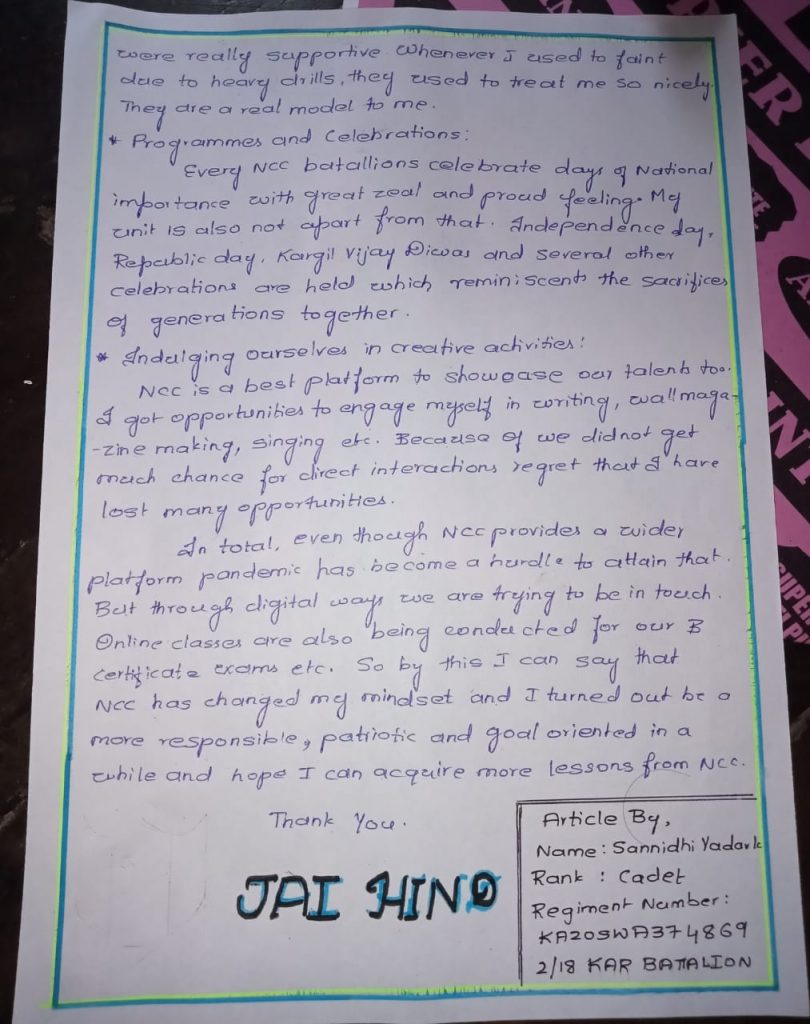 were really supportive whenever I used to faint
due to heavy drills, they used to treat me so nicely.
They are a real model to me.
* Programmes and Celebrations:
Every NCC batallions celebrate days of National
importance with great zeal and proud feeling. My
unit is also not apart from that. Independence day,
Republic day, Kargil Vijay Diwas and several other
celebrations are held which reminiscents the sacrifices
of generations together.
* Indulging ourselves in creative activities:
NCC is a best platform to showcase our talents too.
I got opportunities to engage myself in writing, wall maga-
-zine making, singing etc. Because of we did not get
much chance for direct interactions regret that I have
lost many opportunities.
In total, even though NCC provides a wider
platform pandemic has become a hurdle to attain that.
But through digital ways we are trying to be in touch.
Online classes are also being conducted for our B
certificate exams etc. So by this I can say that
NCC has changed my mindset and I turned out be a
more responsible, patriotic and goal oriented in a
while and hope I can acquire more lessons from NCC.
Thank You.
JAI HIND
Article By,
Name: Sannidhi Yadav K
Rank : Cadet
Regiment Number:
KA20SWA374869
2/18 KAR BATTALION
SUPER
HELP